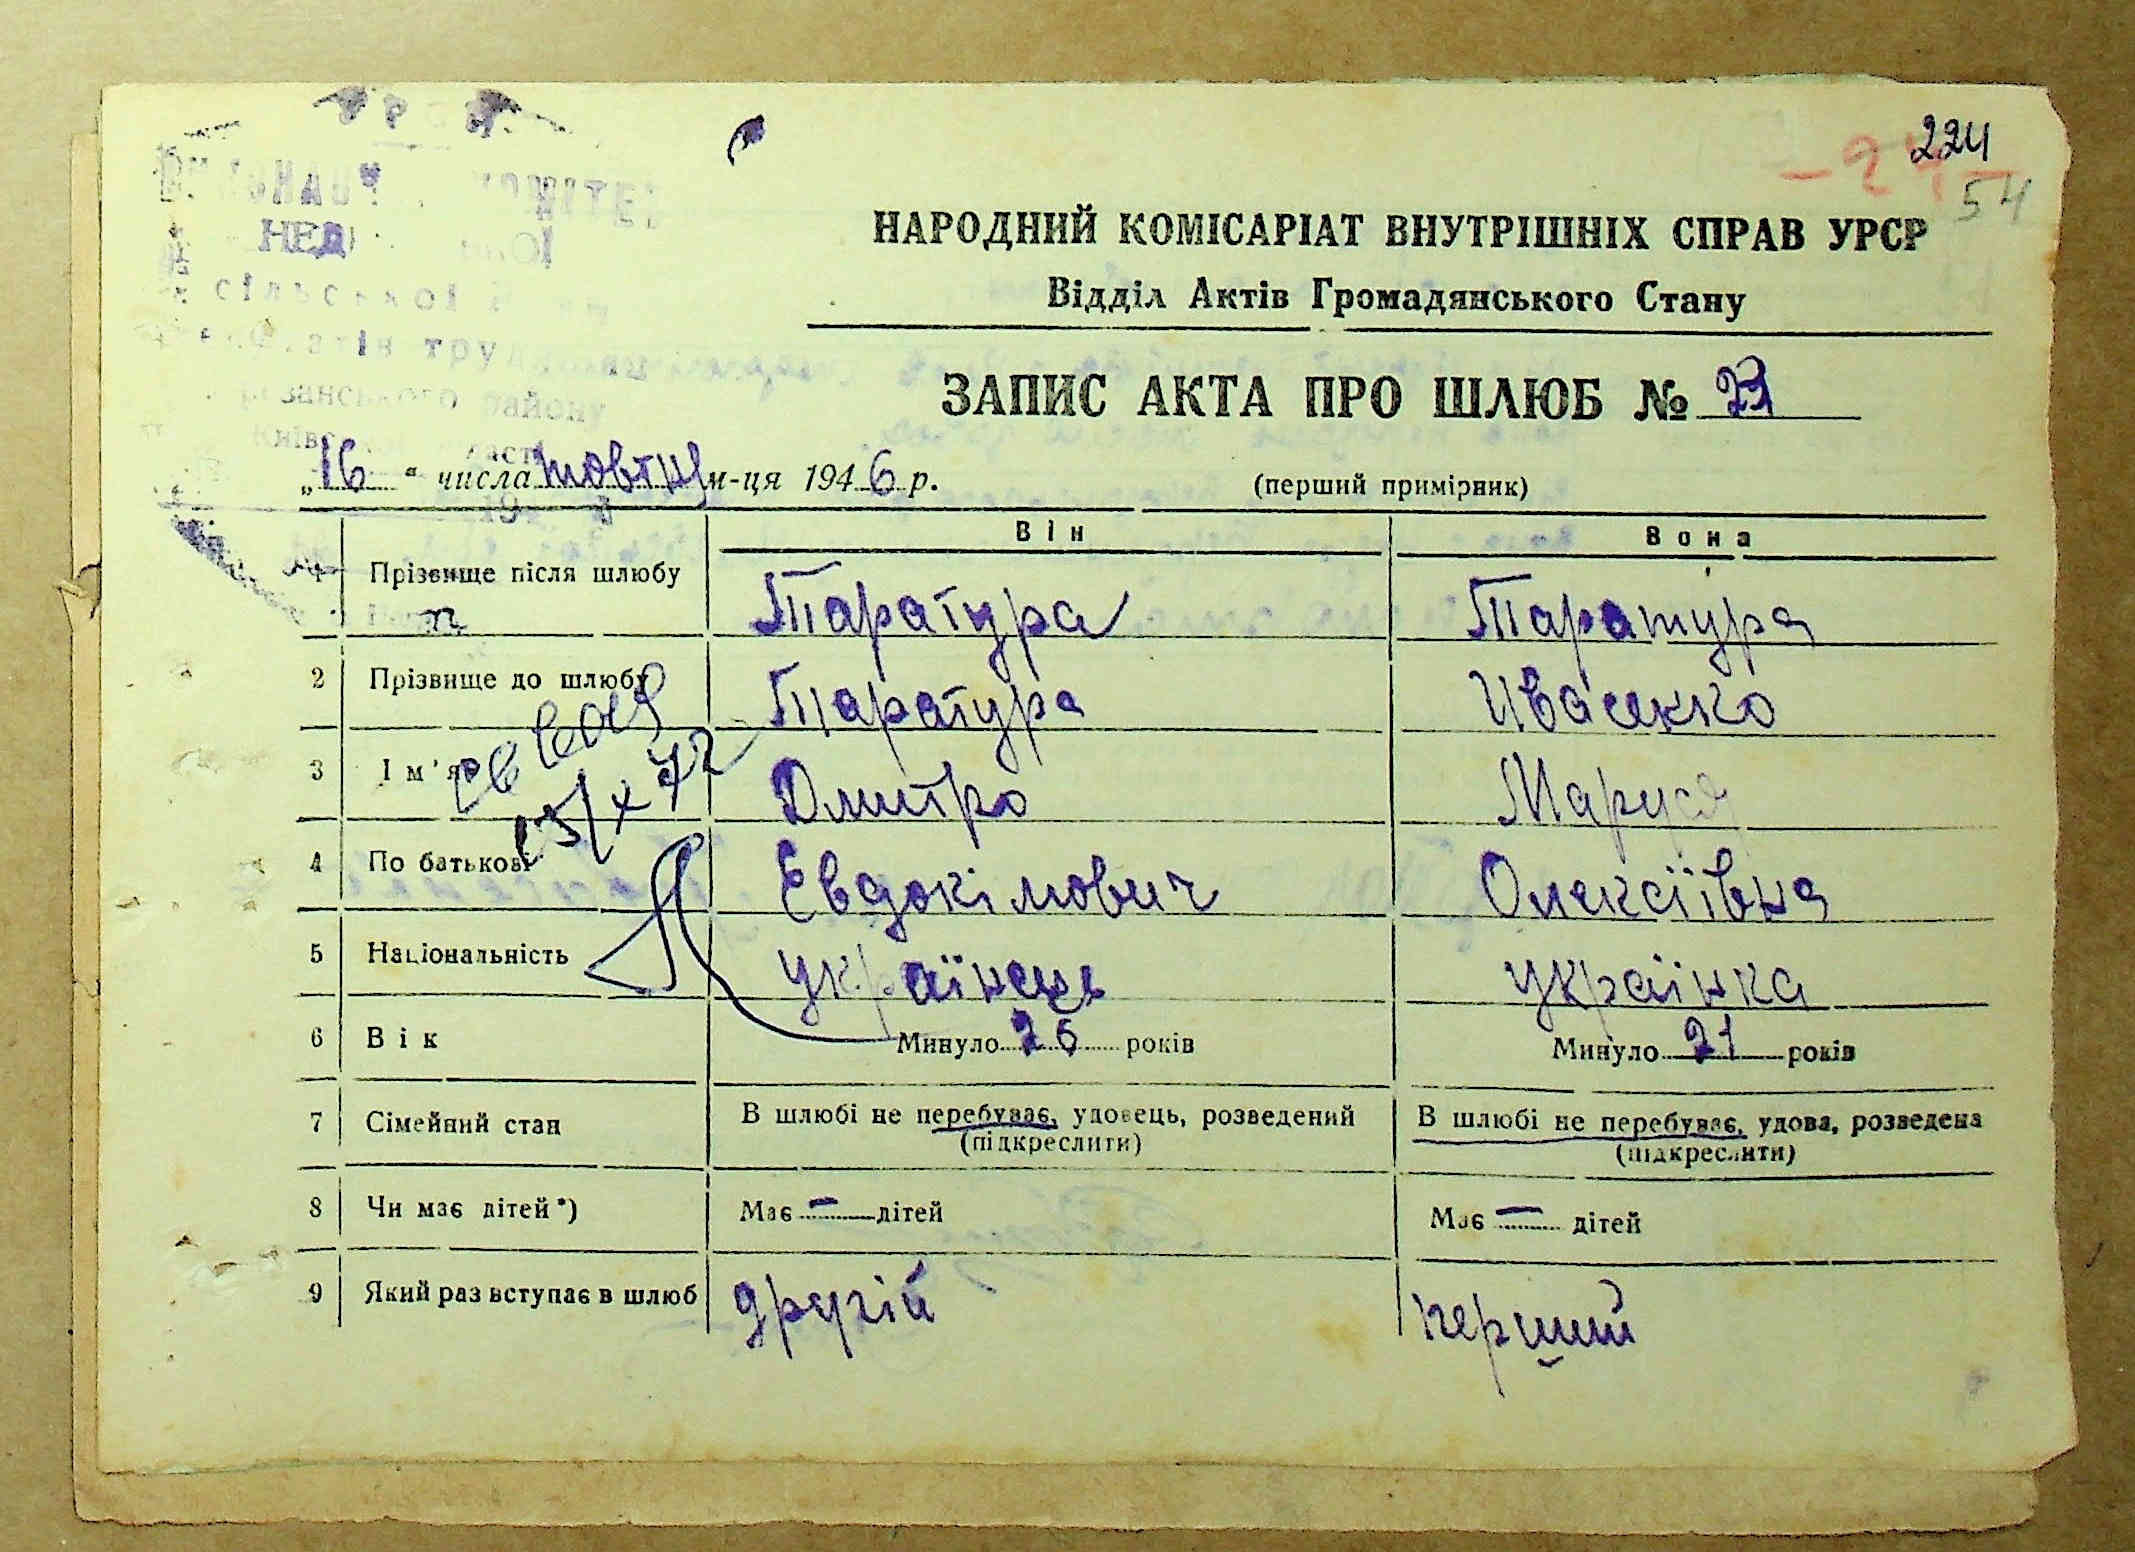 224
54
НАРОДНИЙ КОМІСАРІАТ ВНУТРІШНІХ СПРАВ УРСР
Відділ Актів Громадянського Стану
ЗАПИС АКТА ПРО ШЛЮБ №
„16“ числа жовтня м-ця 1946 р.
(перший примірник)
Він Вона
1 Прізвище після шлюбу Таратура Таратура
2 Прізвище до шлюбу Таратура Ивасенко
3 Ім'я Дмитро Маруся
15/X 72
4 По батькові Евдокімович Олексіївна
5 Національність українець українка
6 Вік Минуло 26 років Минуло 21 років
7 Сімейний стан В шлюбі не перебуває, удовець, розведений В шлюбі не перебуває, удова, розведена
(підкреслити) (підкреслити)
8 Чи має дітей*) Має – дітей Має – дітей
9 Який раз вступає в шлюб другій перший